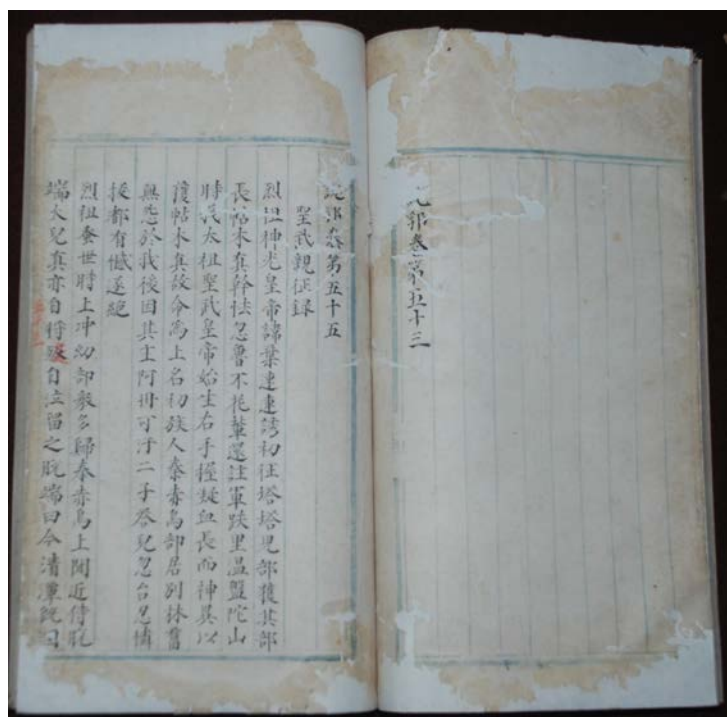 說郛卷第五十三
說郛卷第五十五
聖武親征録
烈祖神光皇帝諱葉速速誘初征塔塔児部獲其部
長帖木真幹怯忽魯不花輩還注軍跌里温盤陀山
時我太祖聖武皇帝始生右手握凝血長而神異以
獲帖木真故命為上名初族人泰赤烏部居別林舊
無怨於我後因其主阿丹可汗二子塔兒忽台忽憐
援都有憾遂絶
烈祖蚤世時上冲幼部衆多歸泰赤烏上聞近侍脱
端火兒真亦自將叛自泣留之脱端曰今清潭既固